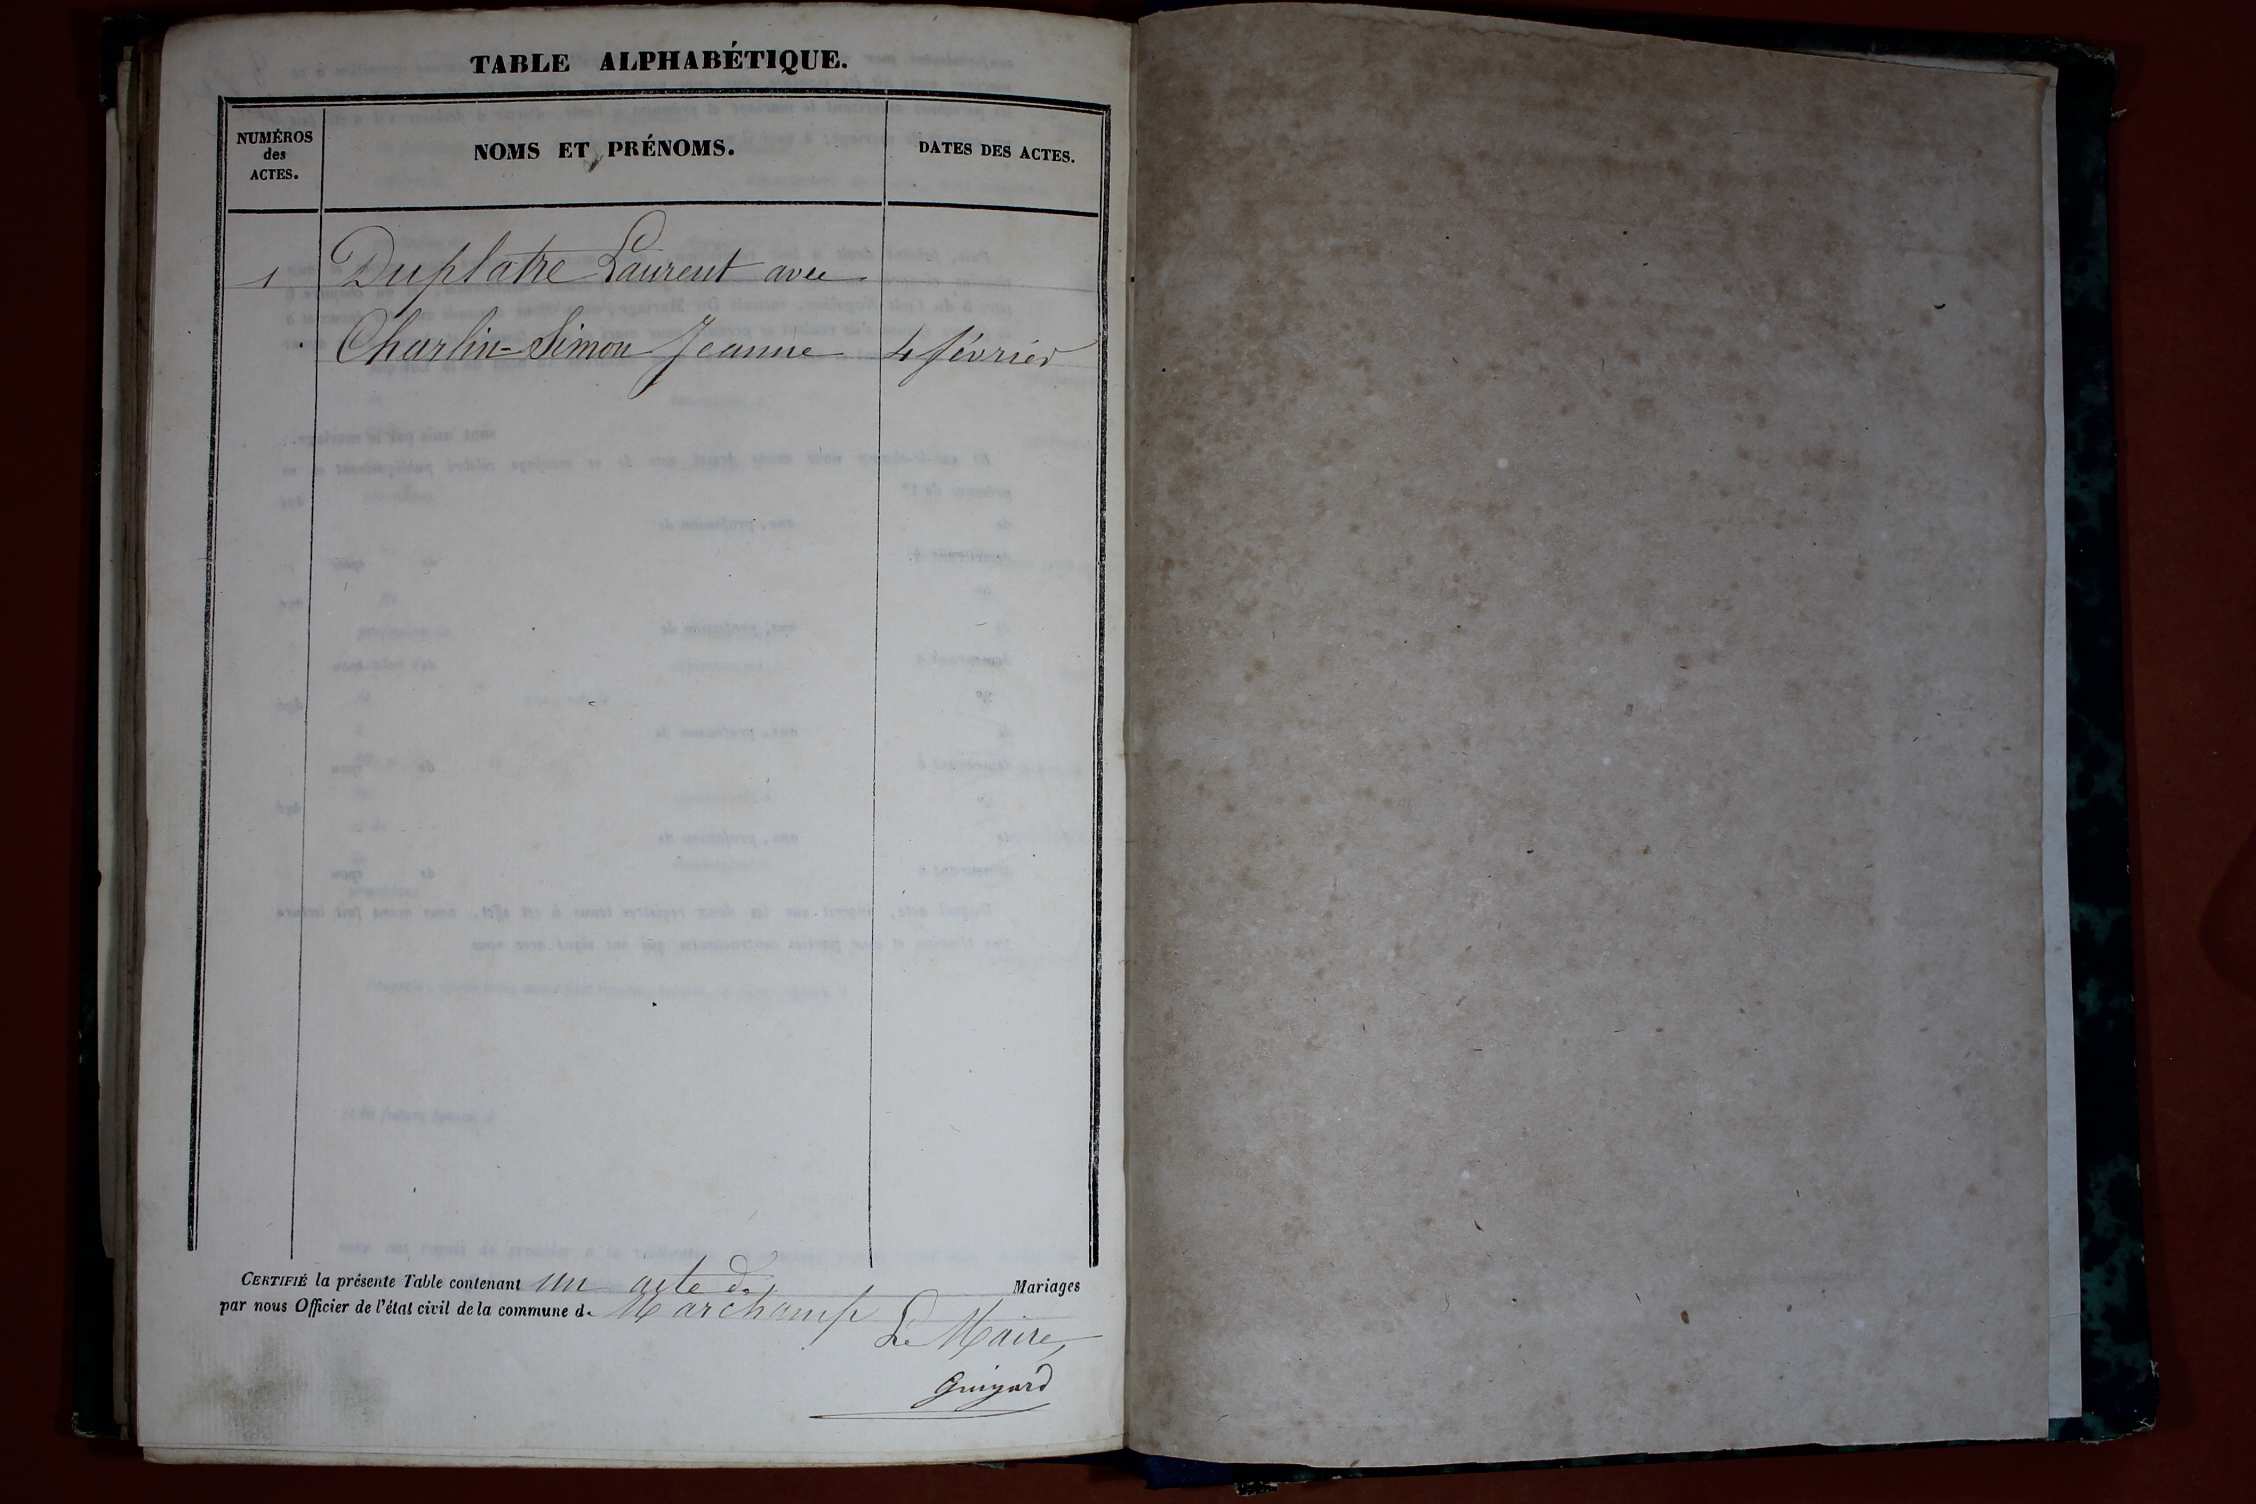 TABLE ALPHABÉTIQUE.
NUMÉROS
des
ACTES.
NOMS ET PRÉNOMS.
DATES DES ACTES.
1 Duplatre Laurent avec
Charlin=Simon Jeanne 4 février
CERTIFIÉ la présente Table contenant un acte de Mariages
par nous Officier de l'état civil de la commune de Marchamp
Le Maire,
Guigard